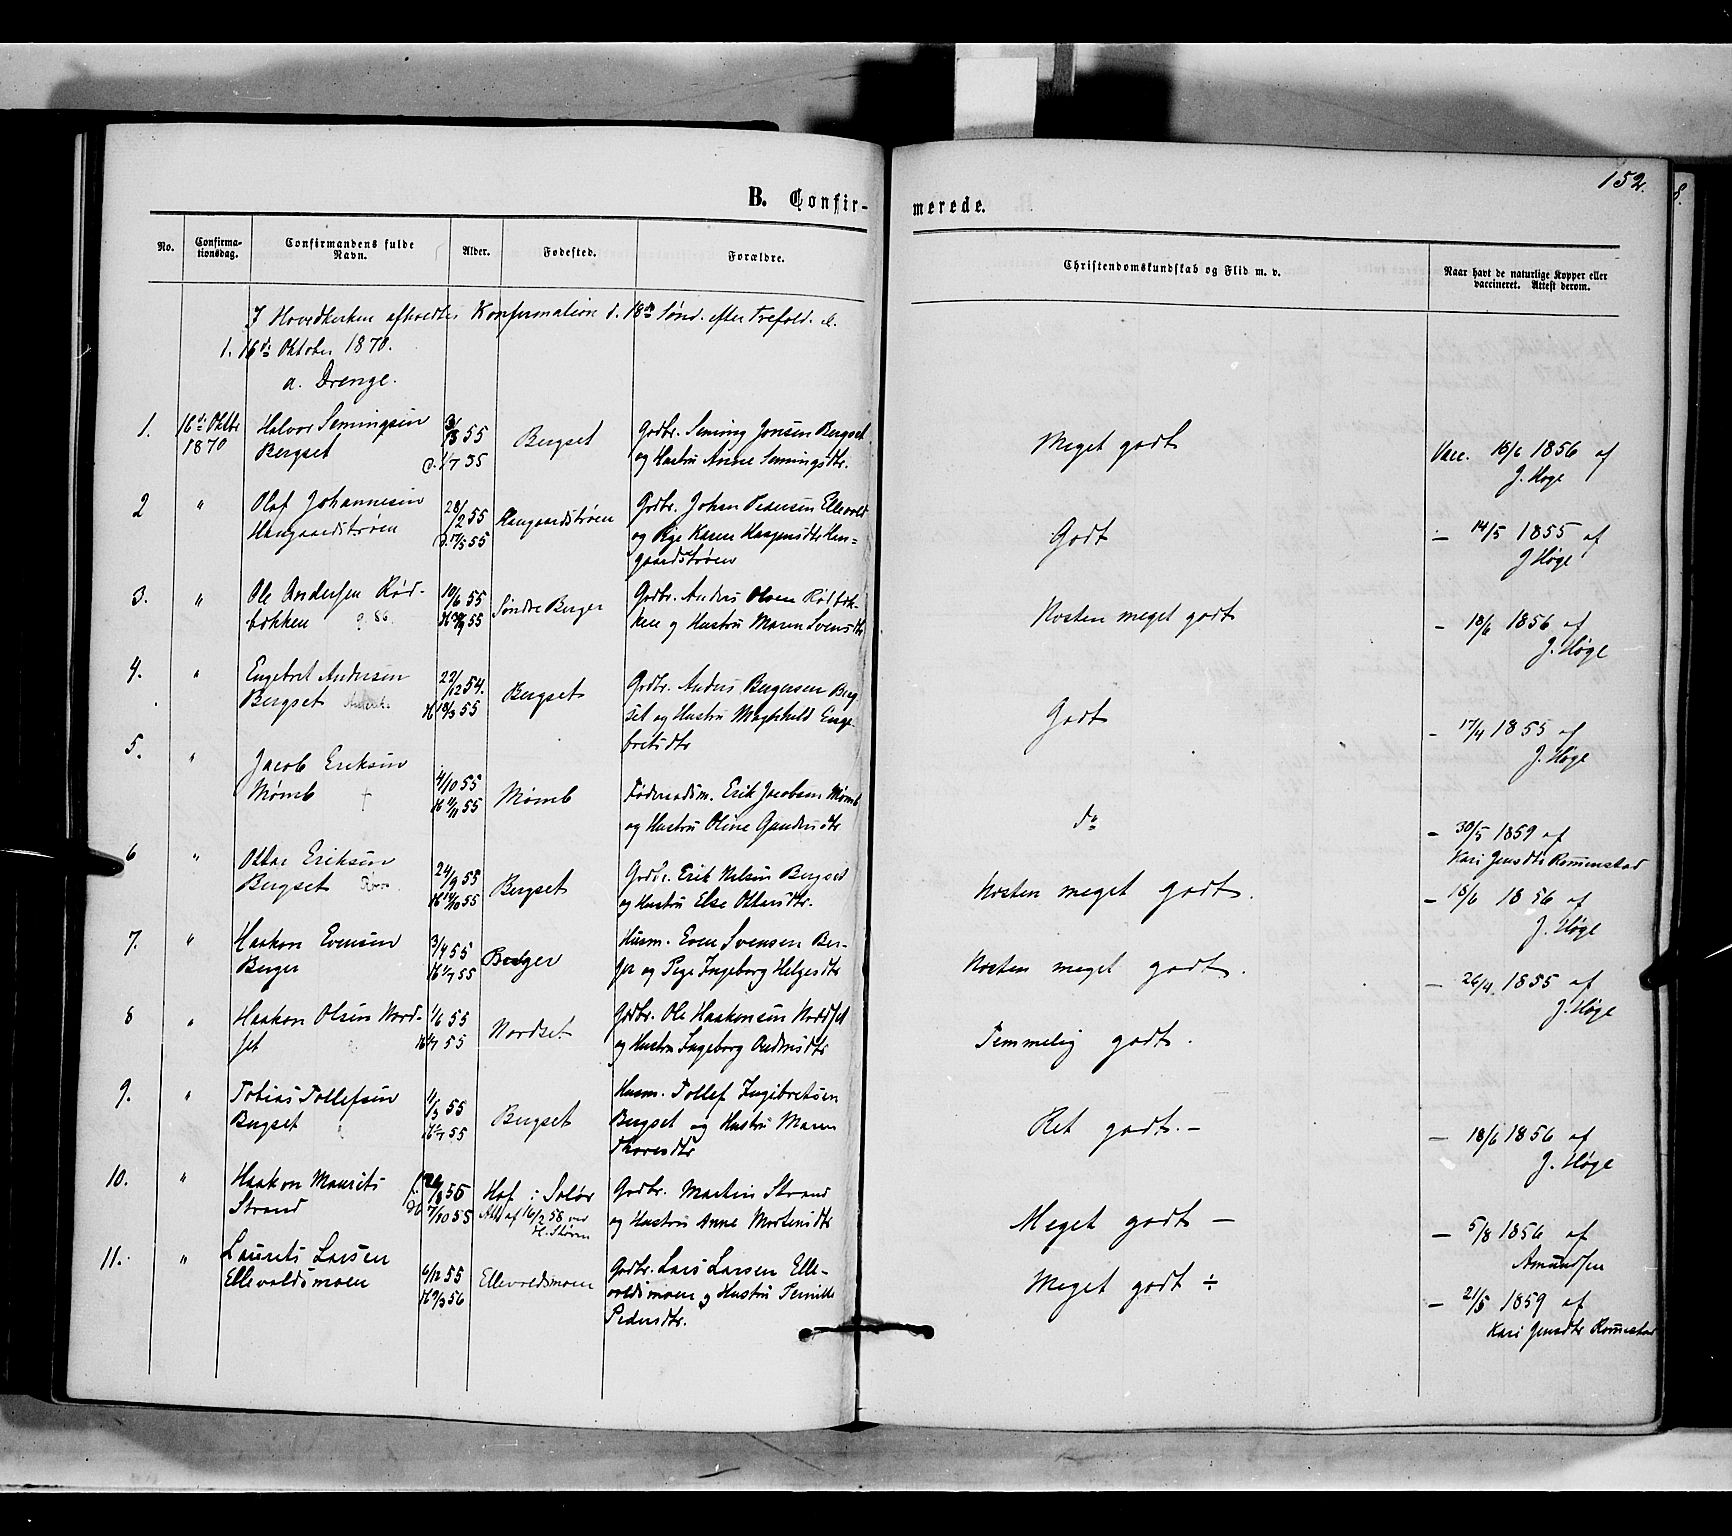 152.
B. Confir-
merede.
No.
Confirma-
tionsdag.
Confirmandens fulde
Navn.
Alder.
Fødested.
Forældre.
Christendomskundskab og Flid m. v.
Naar havt de naturlige Kopper eller
vaccineret. Attest derom.
I Hovedkirken afholdtes Konfirmation d. 18de Sønd. efter Trefold. d.
1. 16de Oktober 1870.
a. Drenge.
1. 16de Oktbr Halvor Semingsen 55 Bergset Gdbr. Seming Jonsen Bergset Meget godt Vacc. 18/6 1856 af
1870 Bergset d. 1/7 55 og Hustru Anne Semingsdtr. J. Høge
2 " Olaf Johannesen 28/2 55 Haugaardstrøen Gdbr. Johan Pedersen Ellevold Godt — 14/5 1855 af
Haugaardstrøen d. 17/5 55 og Pige Karen J. Høge
gaardstrøen
3. " Ole Andersen Rød- 10/6 55 Søndre Berger Gdbr. Anders Olsen Rødbæk- Næsten meget godt – 18/6 1856 af
bækken 55 ken og Hustru Maren Svensdtr J. Høge
4. " Engebret Andersen 22/12 54. Bergset Gdbr. Anders Bergersen Berg- Godt – 17/4 1855 af
Bergset 18/3 55 set og Hustru Magnhild Enge- J. Høge
bretsdtr
5. " Jacob Eriksen 4/10 55 Mømb Føderaadsm. Erik Jacobsen Mømb do – 30/5 1859 af
Mømb † 11/11 55 og Hustru Oline Gundersdtr Kari Jensdtr Romenstad
6 " Ottar Eriksen 24/9 55 Bergset Gdbr. Erik Nelsen Bergset Næsten meget godt. – 18/6 1856 af
Bergset 14/10 55 og Hustru Else Ottarsdtr. J. Høge
7. " Haakon Evensen 3/4 55 Berger Husm. Even Svensen Ber- Næsten meget godt. – 26/4. 1855 af
Berger 1/7 55 ger og Pige Ingeborg Helgesdtr J. Høge
8 " Haakon Olsen Nord- 1/6 55 Nordset Gdbr. Ole Haakonsen Nordset Temmelig godt.
set 1/7 55 og Hustru Ingeborg Andersdtr
9. " Tobias Tollefsen 1/5 55 Bergset Husm. Tollef Ingebretsen Ret godt. – – 18/6 1856 af
Bergset 55 Bergset og Hustru Maren J. Høge
Thoresdtr
10. " Haakon Maurits 55 Hof i Solør Gdbr. Martin Strand Meget godt – – 5/8 1856 af
Strand 7/10 55 Att. af 16/2 58 og Hustru Anne Mortensdtr Amundsen
11. " Laurits Larsen 6/12 55 Ellevoldsmoen Gdbr. Lars Larsen Elle- Meget godt ÷ – 21/5 1859 af
Ellevoldsmoen 9/3 56 voldsmoen og Hustru Pernille Kari Jensdtr Romenstad
Pedersdtr.